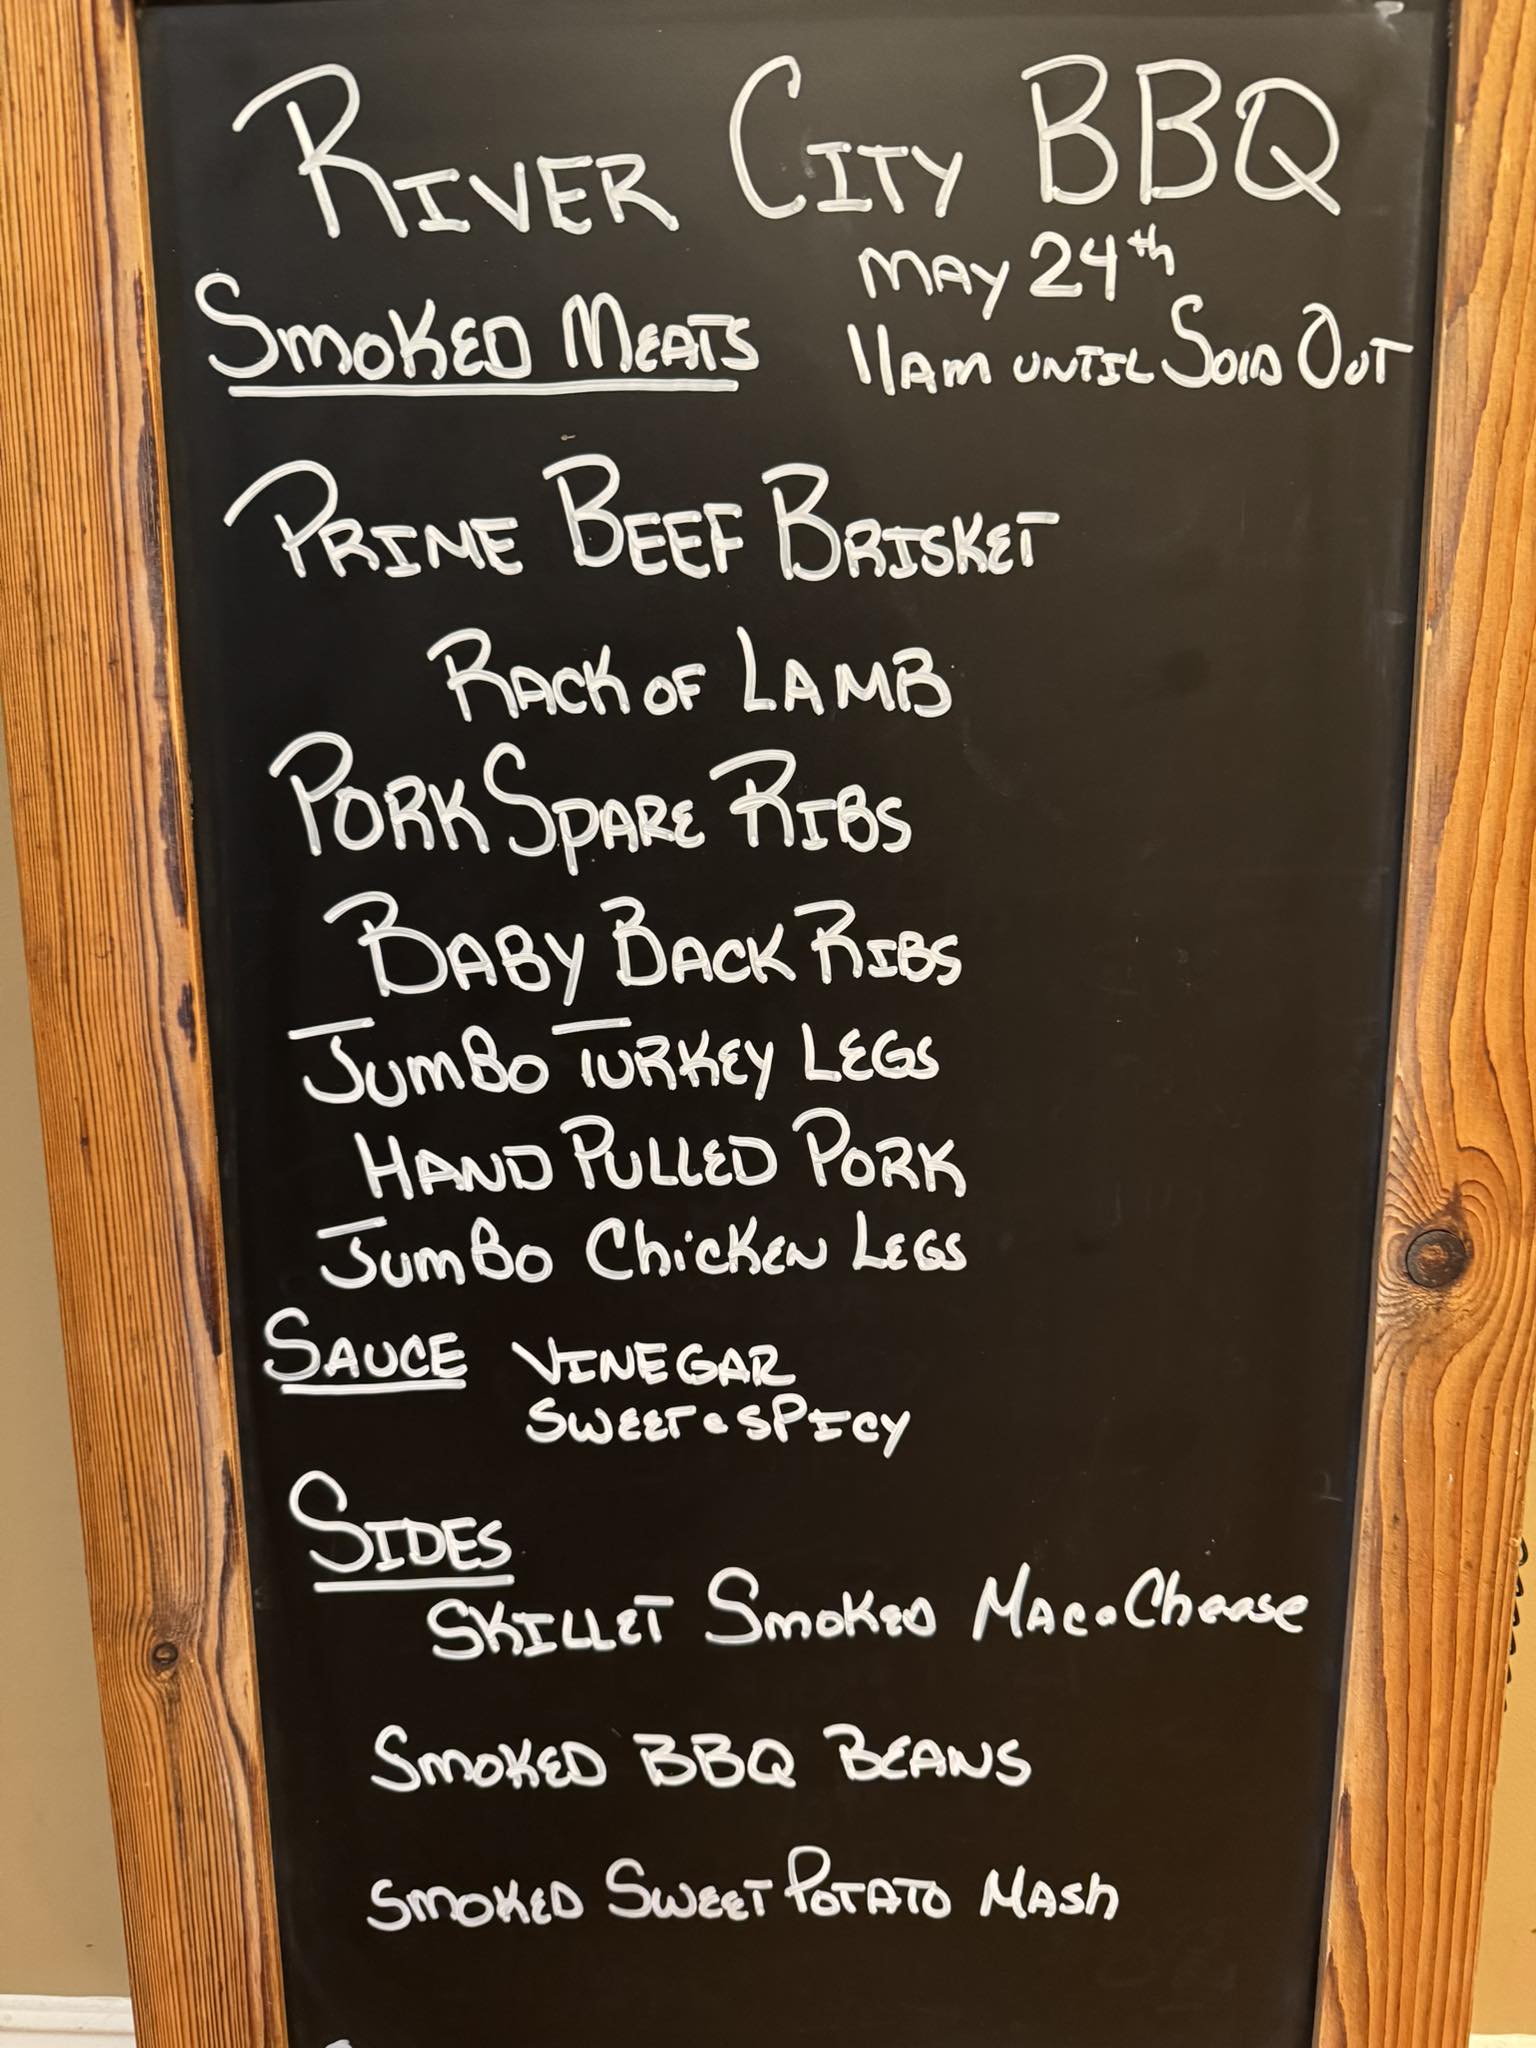 RIVER CITY BBQ
MAY 24th
SMOKED MEATS
11AM UNTIL SOLD OUT
PRIME BEEF BRISKET
RACK OF LAMB
PORK SPARE RIBS
BABY BACK RIBS
JUMBO TURKEY LEGS
HAND PULLED PORK
JUMBO CHICKEN LEGS
SAUCE VINEGAR
SWEET & SPICY
SIDES
SKILLET SMOKED MAC & Cheese
SMOKED BBQ BEANS
SMOKED SWEET POTATO MASH